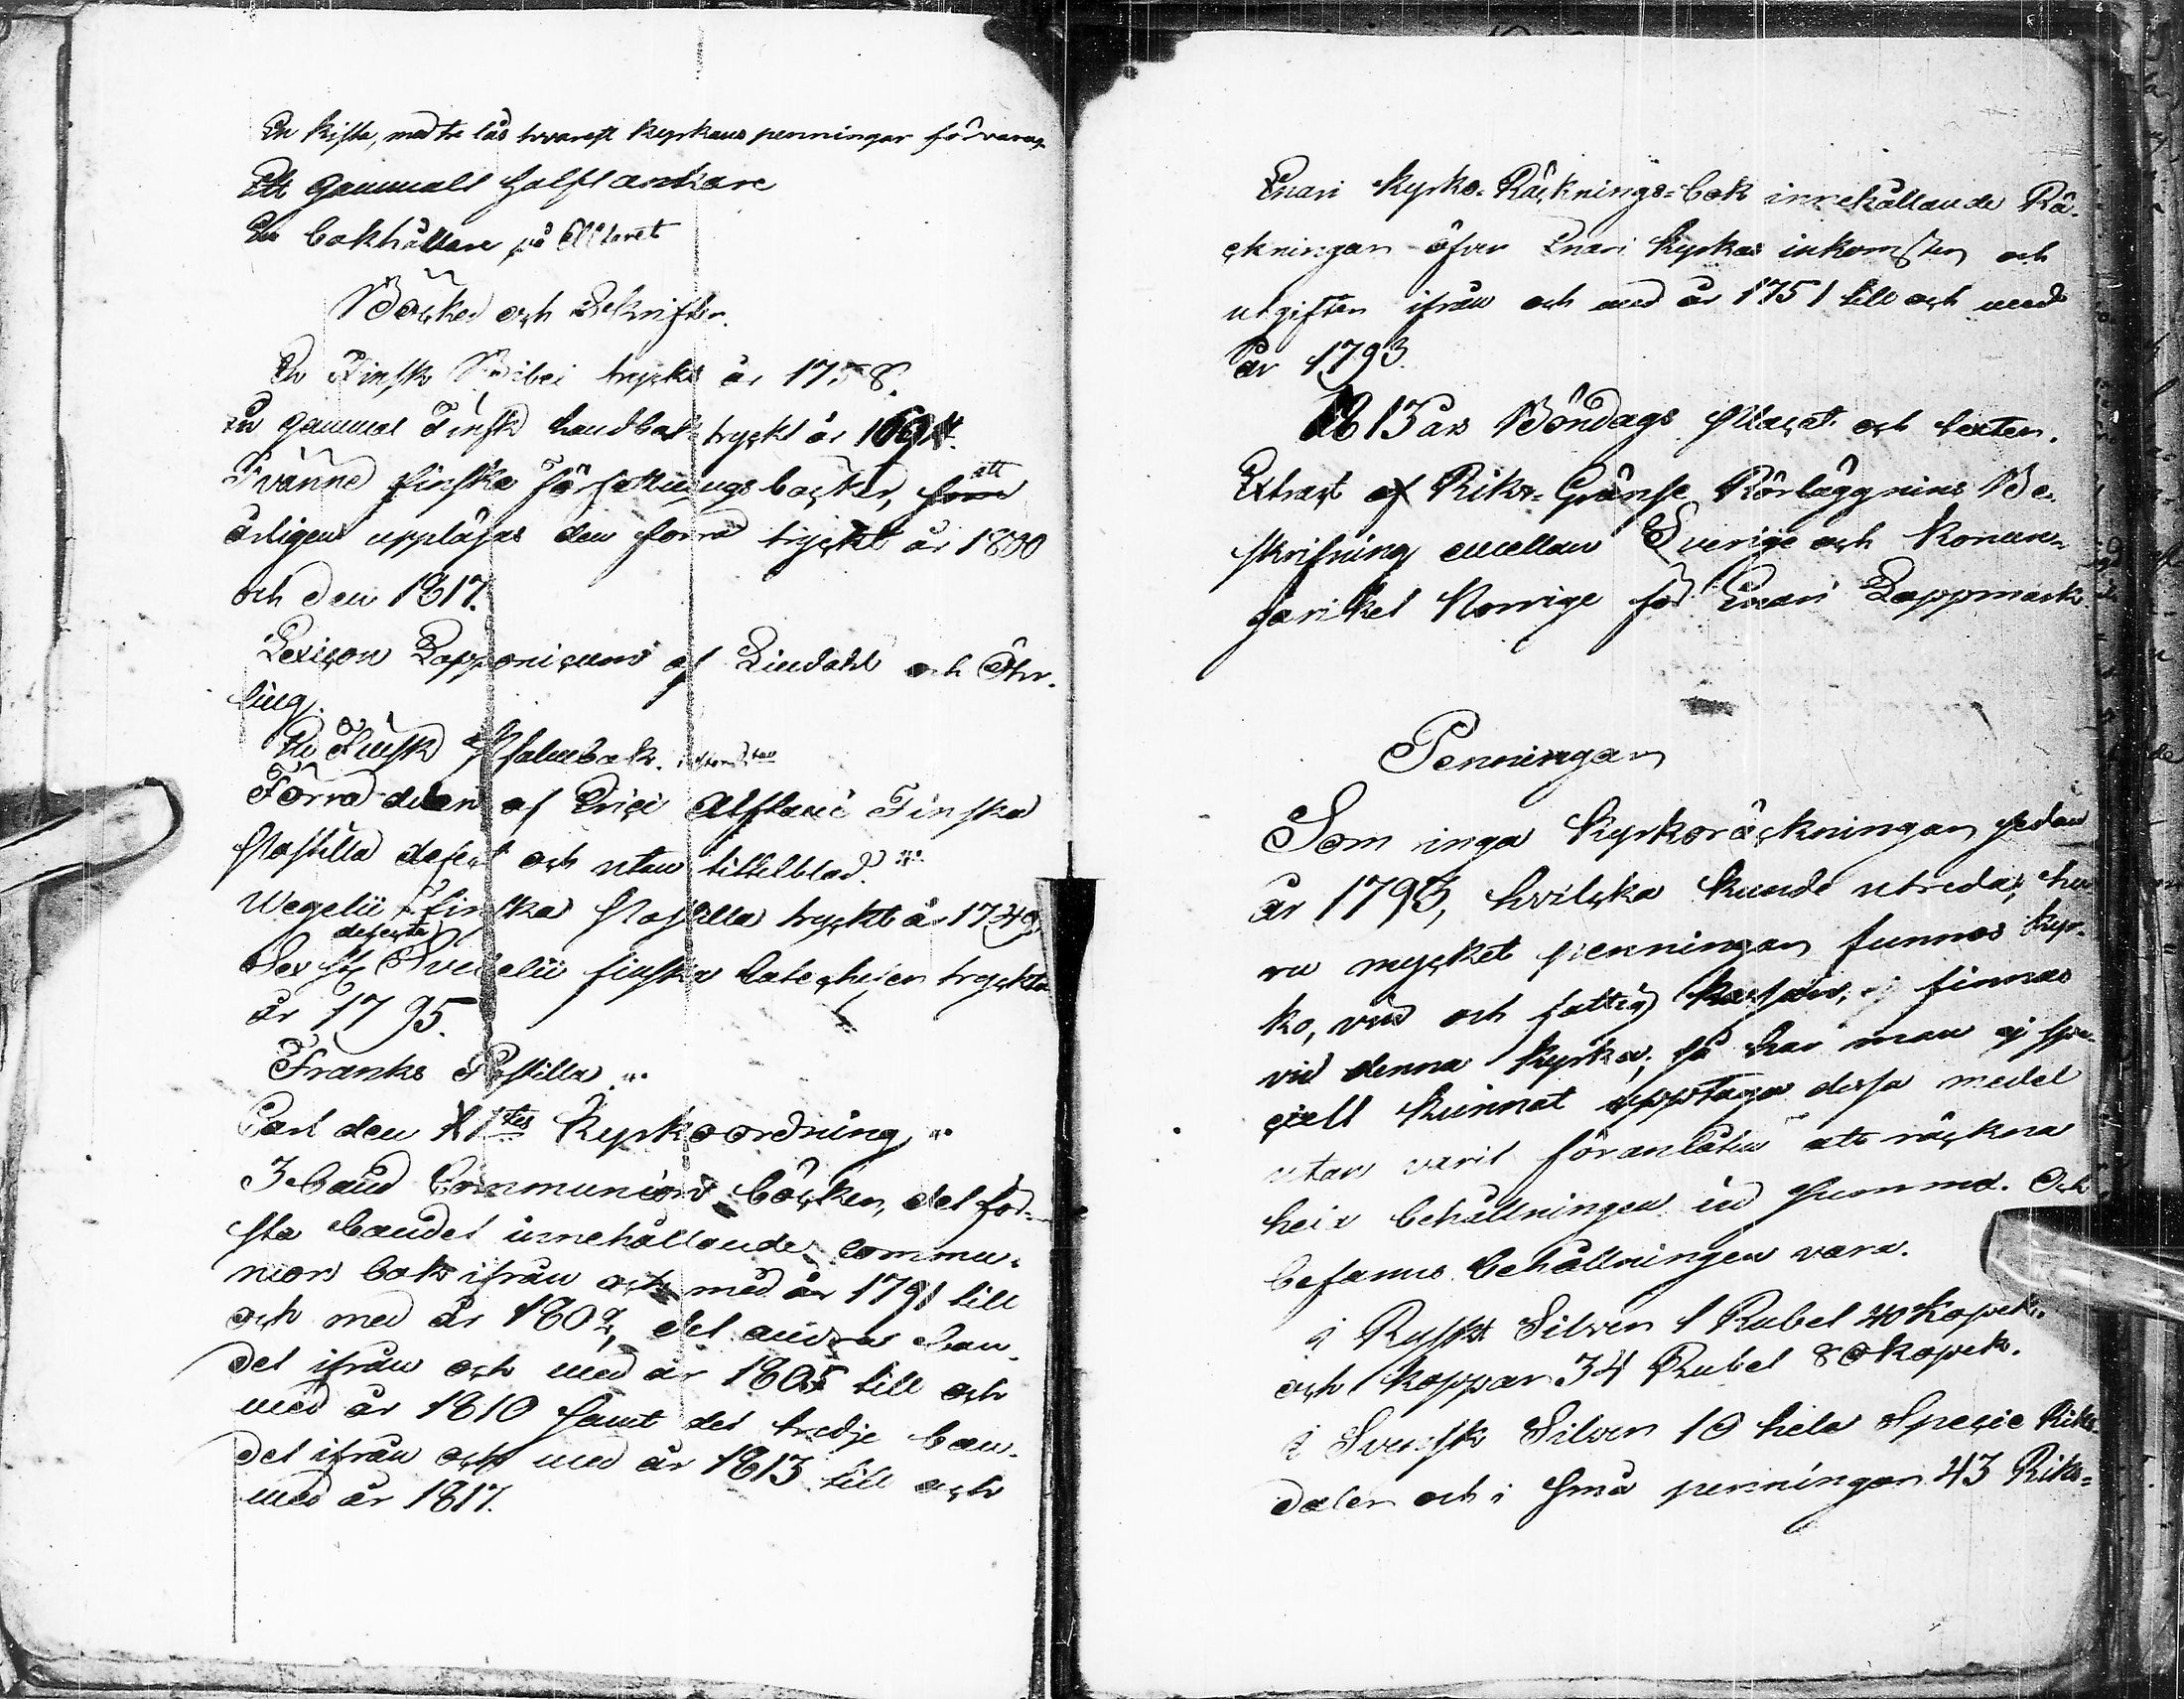 En kista, med tre lås hvarest kyrkans penningar förvaras
Ett gammalt halft ankare
En bokhållare på Altaret
Böcker och Skrifter.
En Finsk Bibel tryckt år 1758.
En gammal Finsk handbok tryckt år 1694.
Tvänne finska Författnings böcker, som att
årligen uppläsas den förra tryckt år 1800
och den 1817.
Lexicon Lapponicum af Lindahl och Öhr-
ling.
En Finsk Psalmbok.
Förra delen af Erici Finska
Postilla defect och utan tittelblad.
Wegelii Finska Postilla tryckt år 1749
defecta
Sex st Svebelii finska Catecheser tryckta
år 1795.
Franks Postilla
Carl den XI tes Kyrkoordning
3 band Communions böcker, det för-
sta bandet innehållande commu-
nion bok ifrån och med år 1791 till
och med år 1802, det andra ban-
det ifrån och med år 1805 till och
med år 1810 samt det tredje ban-
det ifrån och med år 1813 till och
med år 1817.
Enari Kyrko-Räcknings-bok innehållande Rä-
ckningar öfver Enari kyrkas inkomster och
utgifter ifrån och med år 1751 till och med
år 1793.
1813 års Böndags Placat och texter.
Extract af Riks-Gränse Rörläggnins Be-
skrifning emellan Sverige och Konun-
gariket Norrige för Enari Lappmark
Penningar
Som inga Kyrkoräckningar sedan
år 1793, hvilcka kunde utreda, hu-
ru mycket penningar funnos kyr-
ko, vin och fattig kassan, finnas
vid denna kyrka; så har man ej spe-
ciellt kunnat upptaga dessa medel
utan varit föranlåten att räckna
hela behållningen in Summa. Och
befanns behållningen vara.
i Ryskt Silver 1 Rubel 40 Kopek.
och koppar 34 Rubel 80 kopek.
i Svensk Silver 10 hela Specie Riks
daler och i små penningar 43 Riks-